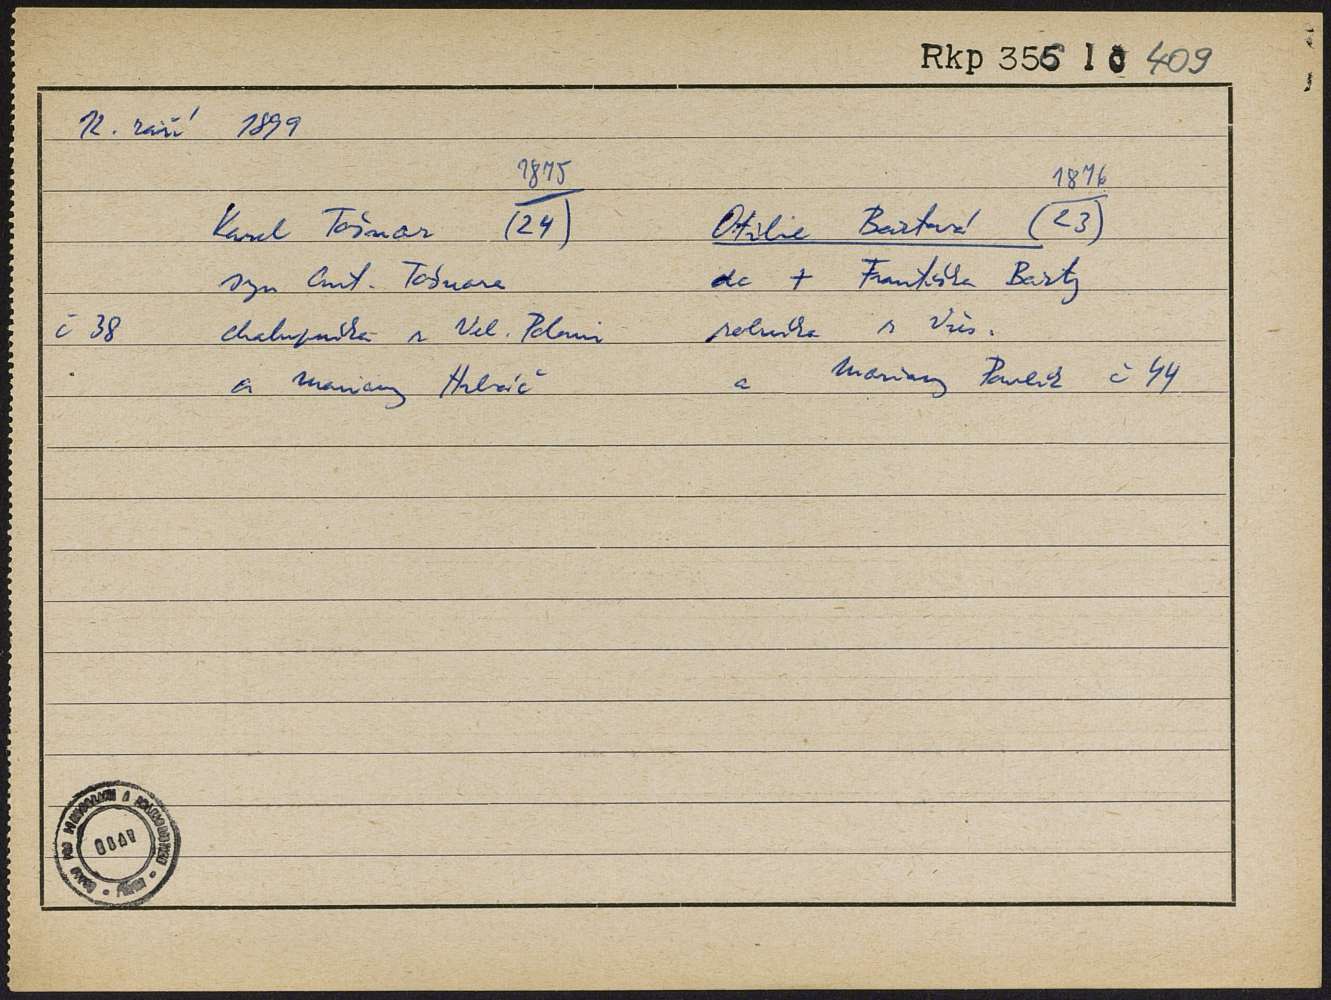 Rkp 356 I 409
12. září 1899
1875 1876
Karel Tošnar (24) Otilie Bartová (23)
syn Ant. Tošnara dc + Františka Barty
č 38 chalupníka z Vel. Polomi rolníka z Vřes.
a Mariany Hrbáč a Mariany Pavlík č 44